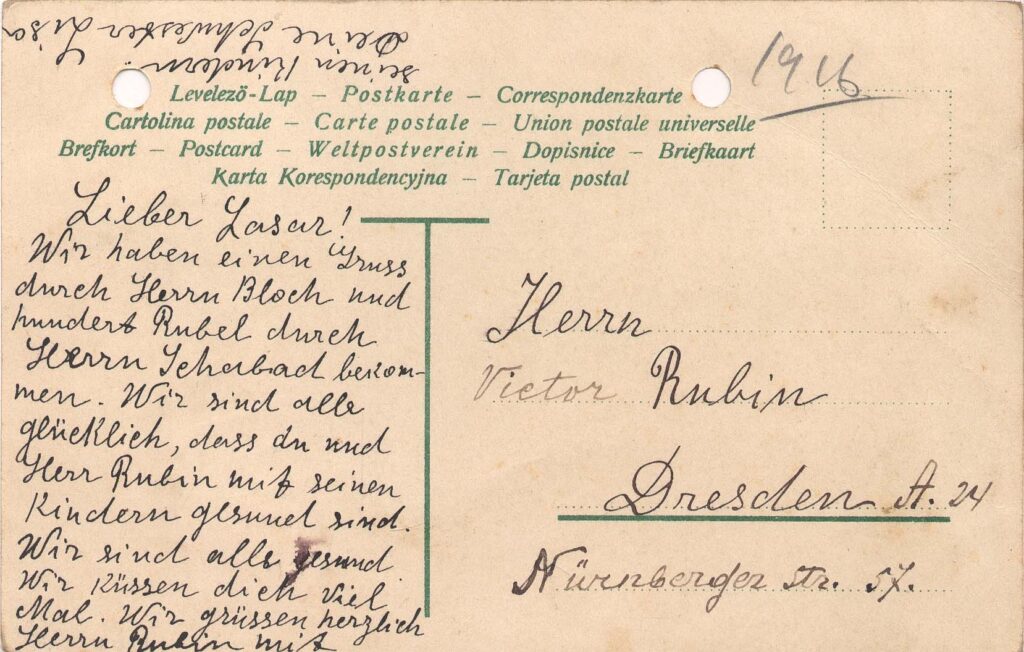 seinen Kindern.
Deine Schwester Lisa
1916
Levelező-Lap – Postkarte – Correspondenzkarte
Cartolina postale – Carte postale – Union postale universelle
Brefkort – Postcard – Weltpostverein – Dopisnice – Briefkaart
Karta Korespondencyjna – Tarjeta postal
Lieber Lasar!
Wir haben einen Gruss
durch Herrn Bloch und
hundert Rubel durch
Herrn Schabad bekom-
men. Wir sind alle
glücklich, dass du und
Herr Rubin mit seinen
Kindern gesund sind.
Wir sind alle gesund
Wir küssen dich viel
Mal. Wir grüssen herzlich
Herrn Rubin mit
Herrn
Victor Rubin
Dresden A. 24
Nürnberger str. 57.